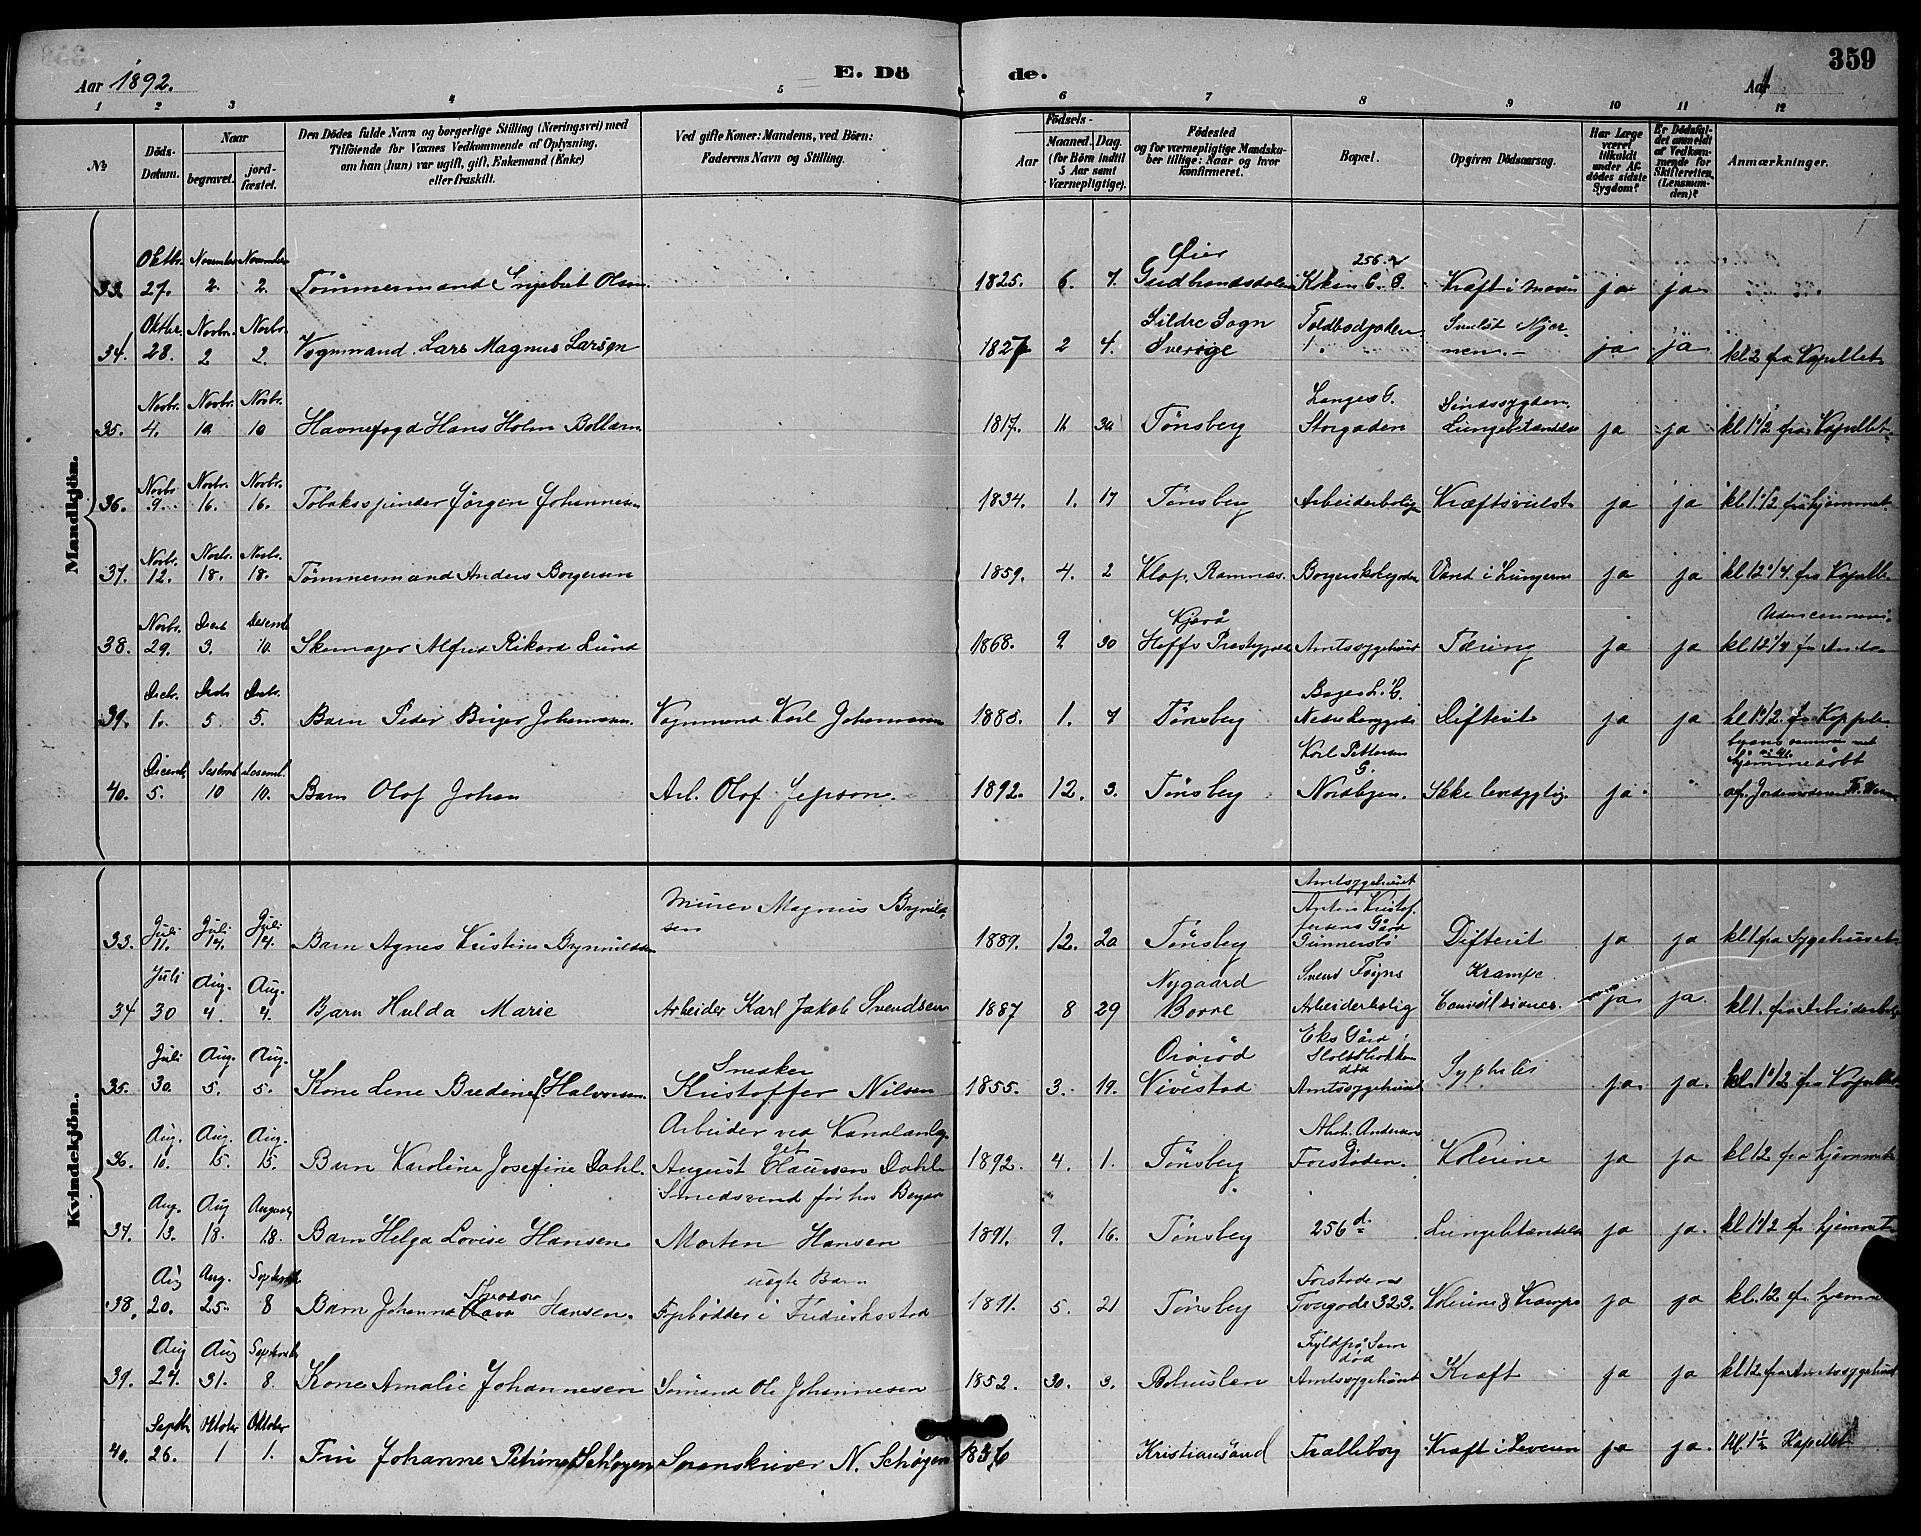 359
Aar 1892.
E. Dö
de.
Aar
1 2 3 4 5 6 7 8 9 10 11 12
№
Döds-Datum.
Naar
begravet.
jordfæstet.
Den Dödes fulde Navn og borgerlige Stilling (Næringsvei) med
Tilföiende for Voxnes Vedkommende af Oplysning,
om han (hun) var ugift, gift, Enkemand (Enke)
eller fraskilt.
Ved gifte Koner: Mandens, ved Börn:
Faderens Navn og Stilling.
Födsels-
Aar
Maaned. Dag.
(for Börn indtil
5 Aar samt
Værnepligtige).
Födested
og for værnepligtige Mandskaber
tillige: Naar og hvor
konfirmeret.
Bopæl.
Opgiven Dödsaarsag.
Har Læge
været
tilkaldt
under Afdödes sidste
Sygdom?
Er Dödsfaldet anmeldt
af Vedkommende for
Skifteretten,
(Lensmanden)?
Anmærkninger.
Mandkjön.
33. Oktbr. 27. November 2. November 2. Tömmermand Ingebret Olsen 1825. 6. 7. Øier Gudbrandsdalen 256 Kraft i Maven ja ja
34. Oktbr. 28. Novbr. 2 Novbr. 2. Vognmand Lars Magnus Larsen 1827 2 4. Sildre Sogn Sverige Toldbodgaden ja ja kl 2 fra Kapellet
35. Novbr. 4. Novbr. 10 Novbr. 10 Havnefogd Hans Holm Bollærn 1817. 11 30 Tønsberg Langes G. Storgaden Sindssygdom Lungebetændelse ja ja kl 1 1/2 fra Kapellet
36. Novbr 9. Novbr. 16. Novbr. 16. Tobaksspinder Jörgen Johannesen 1834. 1. 17 Tønsberg Arbeiderbolig Kræftsvulst ja ja kl. 1 1/2 fra hjemmet
37. Novbr. 12. Novbr. 18. Novbr. 18. Tömmermand Anders Borgersen 1859. 4. 2 Klop. Ramnæs. Vand i Lungerne ja ja kl 12 1/4 fra Kapellet
38. Novbr. 29. Decb 3. Desemb 10. Skomager Alfred Rikard Lund 1868. 9 30 Kjerå Hoffs Præstegjæld Amtssygehuset Tæring ja ja kl 12 1/4
39. Decbr. 1. Decb 5 Decbr. 5. Barn Peder Birger Johansen. Vognmand Karl Johansen 1888. 1. 7 Tønsberg Nedre Langgade Difterit ja ja kl 1 1/2 fra
40. Decemb 5. 10 Decemb. 10. Barn Olof Johan Arb. Olof Jepson. 1892. 12. 3. Tønsberg Karl Pettersen G. Nordbyen. Ikke levedygtig ja hjemmedöbt af Jordemoderen
Kvindekjön.
33. Juli 11. Juli 14. Juli 14. Barn Agnes Kristine Brynildsen Murer Magnus Brynildsen 1889. 12. 20 Tønsberg Amtssygehuset Anton Kristoffersens Gård Gunnersbö Difterit ja ja kl 1 fra Sygehuset
34 Juli 30 Aug. 4. Aug. 4. Barn Hulda Marie Arbeider Karl Jakob Svendsen 1887 8 29 Nygaard Borre Svend Foyns Arbeiderbolig Krampe Convulsiones. ja ja. kl 1. fra Arbeiderbolig
35. Juli 30 Aug. 5. Aug. 5. Kone Lene Bredine Halvorsen Snedker Kristoffer Nilsen 1855. 3. 19. Vivestad Eks Gård i Slotsbakken död Amtssygehuset Syphilis ja ja. kl. 1 1/2 fra Kapellet
36. Aug. 10. Aug. 15. Aug. 15. Barn Karoline Josefine Dahl. Arbeider ved Kanalanlæget August Claussen Dahl 1892. 4. 1. Tønsberg Abrah. Andersen G Forstaden. Kolerine ja ja kl 12 fra hjemmet
37. Aug. 13. Aug 18. August 18. Barn Helga Lovise Hansen Smedsvend Morten Hansen 1891. 9. 16. Tønsberg 256 d. Lungebetændelse ja ja. kl 1 1/2 fr hjemmet
38. Aug 20. Aug. 25. Septemb. 8 Barn Johanna Theodora Hansen. uægte Barn Fyrbødder i Fredriksstad 1891. 5. 21 Tønsberg Forstaden Tvergade 323. Kolerine & Krampe ja ja kl. 12 fr hjemmet
39. Aug 24. Aug 31. Septemb 8. Kone Amalie Johannesen Sömand Ole Johannesen 1852. 30. 3. Bohuslen Fyldpå Sem död Amtssygehuset Kraft ja ja kl 12 fra Amtssygehuset
40. Septbr 26. Oktober 1 Oktober 1. Fru Johanne Petrine Schøyen Sorenskriver N. Schøyen 1836 Kristiansand Tralleborg Kraft i Leveren ja ja. Kl. 1 1/2 Kapellet